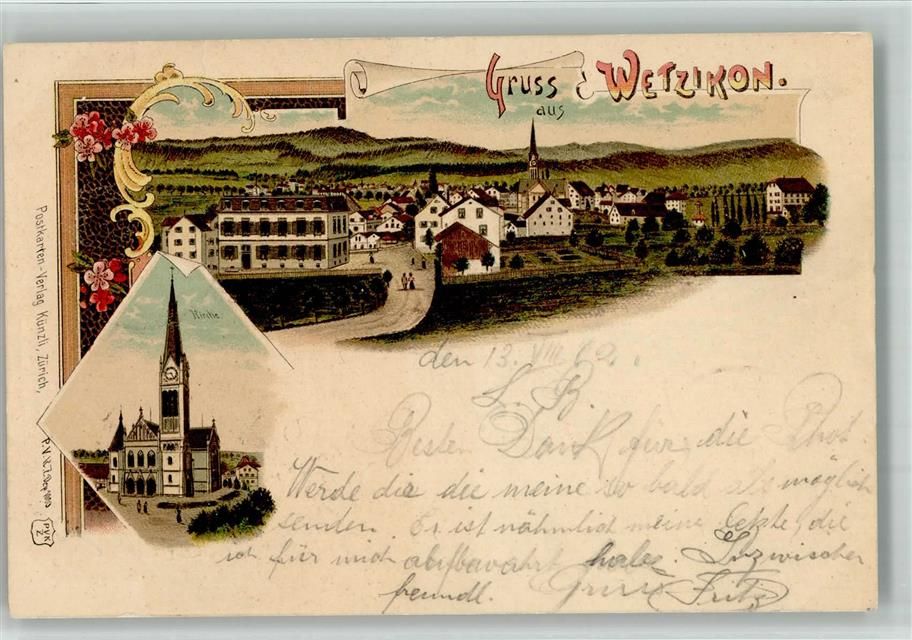 Gruss aus WETZIKON.
Kirche
Postkarten-Verlag Künzli, Zürich,
PVKZ
den 13. VIII
L. B.
Besten Dank für die Phot.
Werde dir die meine so bald als möglich
senden. Es ist nähmlich meine letzte, die
ich für mich aufbewahrt habe. Inzwischen
freundl. Gruss Fritz